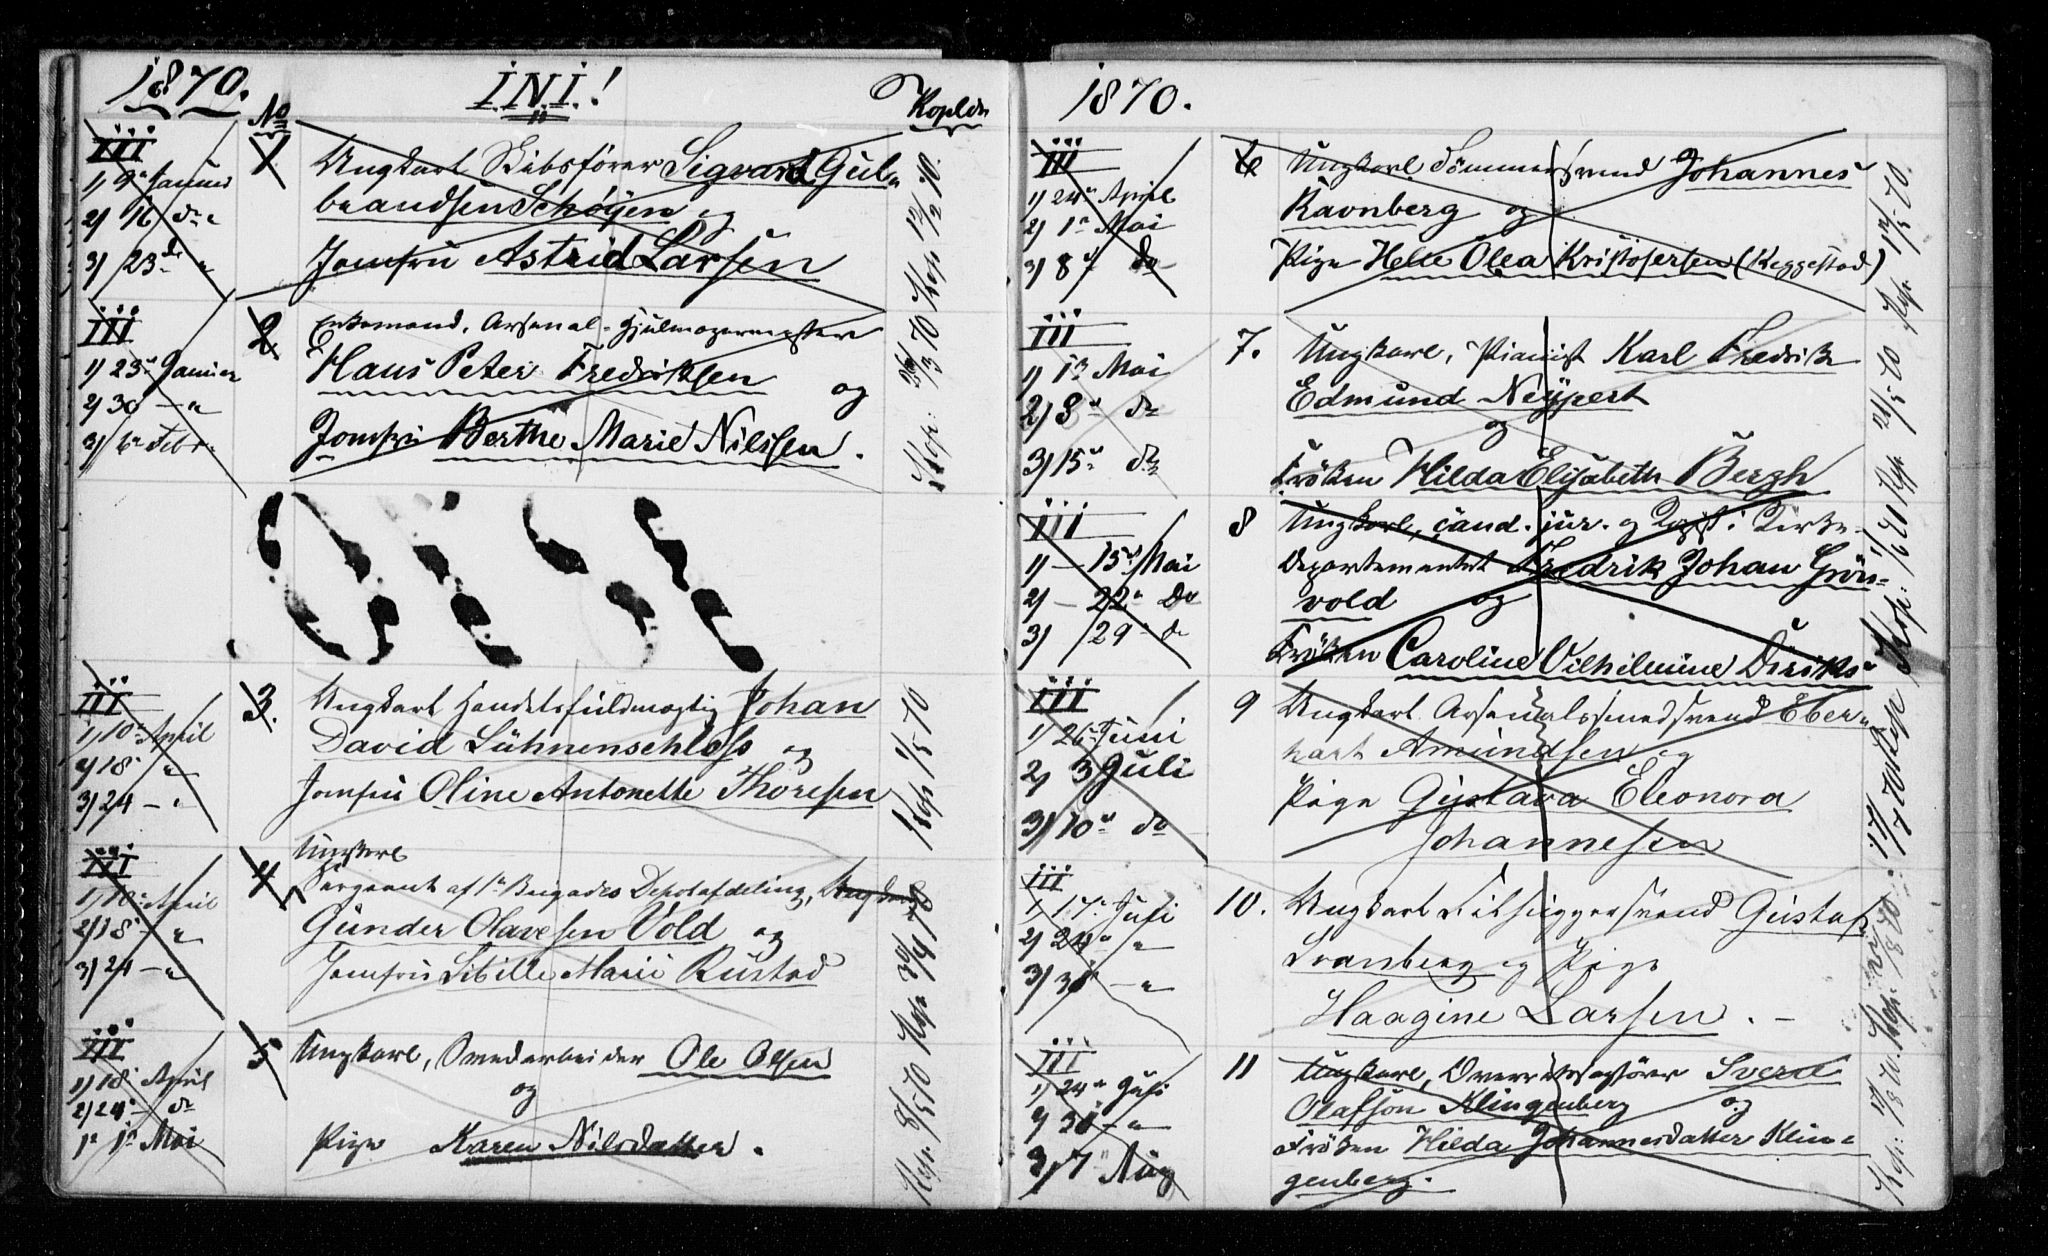 1870.
No
I.N.I.!
Kopldr
III
1) 9n Januar
2) 16 do "
3) 23 do "
1
Ungkarl Skibsfører Sigvard Gul-
brandsen Schøyen og
Jomfru Astrid Larsen
Kop 12/2 70.
III
1) 23n Januar
2) 30 – "
3) 6n Febr.
2
Enkemand, Arsenal-Hjulmagermester
Hans Peter Fredriksen og
Jomfru Berthe Marie Nilssen.
III
1) 10n April
2) 18 "
3) 24 – "
3.
Ungkarl Handelsfuldmægtig Johan
David Lühnenschloss og
Jomfru Oline Antonette Thoresen
Kop 1/5 70
III
1) 10n April
2) 18n "
3) 24 – "
4
Ungkarl
Sergeant af 1n Brigades Depotafdeling, Ungkarl
Günder Olavesen Vold og
Jomfru Sibille Marie Rustad
Kop 30/4 70
III
1) 18n April
2) 24n do
1n 1n Mai
5
Ungkarl, Smedarbeider Ole Olsen
og
Pige Karen Nilsdatter.
1870.
III
1) 24n April
2) 1n Mai
3) 8n do
6
Ungkarl Tømmersvend Johannes
Ravnberg og
Pige Helle Olea Kristofersen (Keggestad)
III
1) 1n Mai
2) 8n do
3) 15n do
7.
Ungkarl, Pianist Karl Fredrik
Edmund Neypert
og
Frøken Hilda Elisabeth Bergh
III
1) – 15n Mai
2) – 22n do
3) 29n do
8
Ungkarl, cand. jur. og i Kirke-
Departementet Fredrik Johan Grøn-
vold og
Frøken Caroline Vilhelmine Diriks
III
1) 26n Juni
2) 3 Juli
3) 10n do
9
Ungkarl Arsenalssmedsvend Eber-
hart Amundsen og
Pige Gustava Eleonora
Johannesen
III
1 17n Juli
2) 24n "
3) 31 – "
10.
Ungkarl Filhuggersvend Gustaf
Svanberg og Pige
Haagine Larsen. –
III
1) 24n Juli
2) 31 – "
3) 7 " Aug
11
Ungkarl, Overretssagfører Sverd
Olafson Klingenberg og
Frøken Hilda Johannesdatter Klin-
genberg.